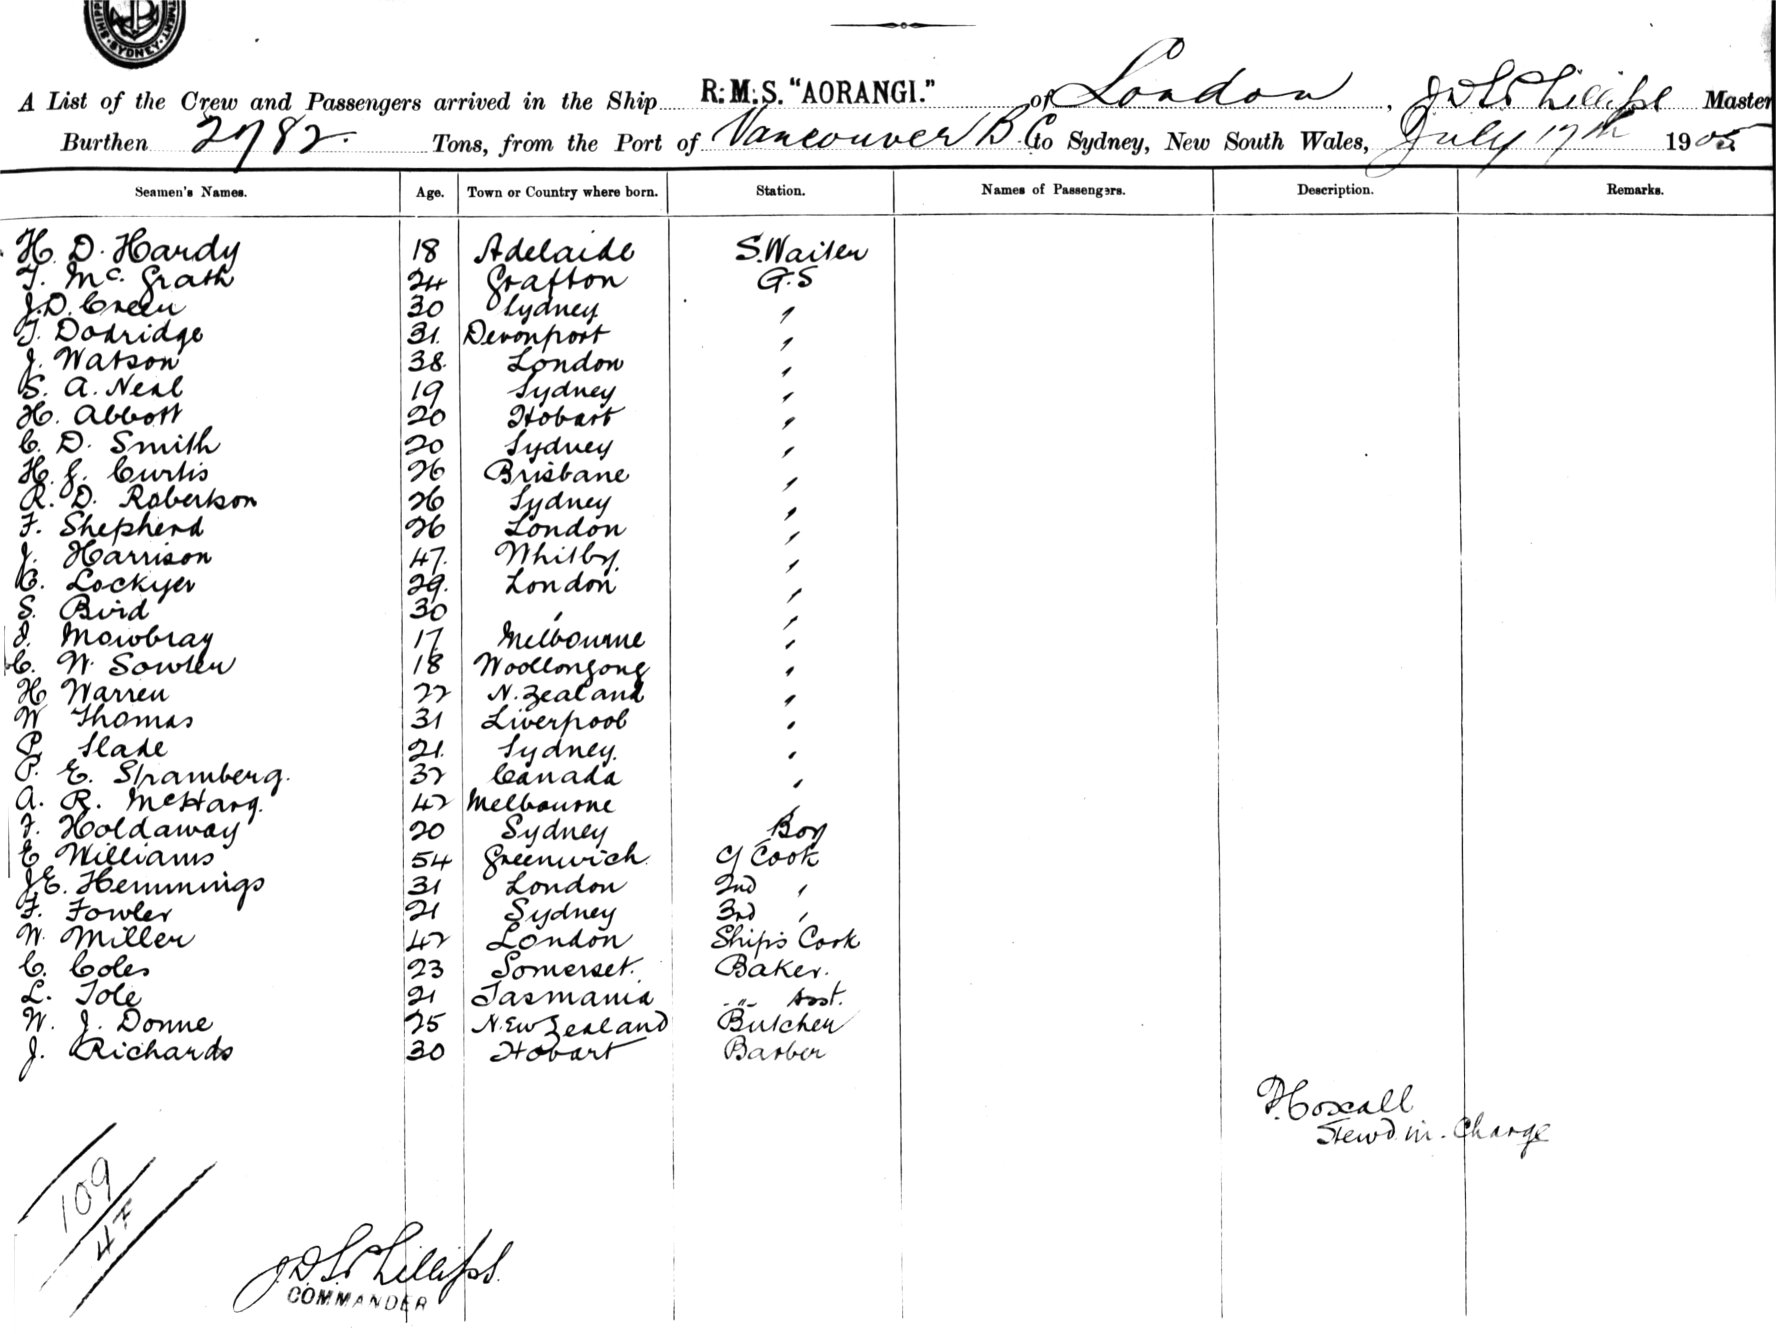 SHIPPING DEPARTMENT SYDNEY
A List of the Crew and Passengers arrived in the Ship R.M.S. "AORANGI." of London, J D S Phillips Master
Burthen 2782. Tons, from the Port of Vancouver B.C. to Sydney, New South Wales, July 17th 1905
Seamen's Names. Age. Town or Country where born. Station. Names of Passengers. Description. Remarks.
H. D. Hardy 18 Adelaide S. Waiter
T. McGrath 24 Grafton G.S
J.D. Creen 30 Sydney "
T. Dodridge 31. Devonport "
J. Watson 38. London "
S. A. Neal 19 Sydney "
H. Abbott 20 Hobart "
C. D. Smith 20 Sydney "
H. J. Curtis 26 Brisbane "
R. D. Robertson 26 Sydney "
F. Shepherd 26 London "
J. Harrison 47. Whitby. "
C. Lockyer 29. London "
S. Bird 30 " "
J. Mowbray 17 Melbourne "
C. W. Sowter 18 Woollongong "
H Warren 22 N. Zealand "
W Thomas 31 Liverpool "
P. Slade 21. Sydney. "
P. E. Stramberg. 32 Canada "
A. R. McHarg. 42 Melbourne "
F. Holdaway 20 Sydney Boy
E Williams 54 Greenwich. C Cook
J.E. Hemmings 31 London 2nd "
F. Fowler 21 Sydney 3rd "
W. Miller 42 London Ship's Cook
C. Coles 23 Somerset. Baker.
L. Tole 21 Tasmania " Asst.
W. J. Donne 25 New Zealand Butcher
J. Richards 30 Hobart Barber
Coxall
Stewd in Charge
109
4F
J.D.S. Phillips.
COMMANDER